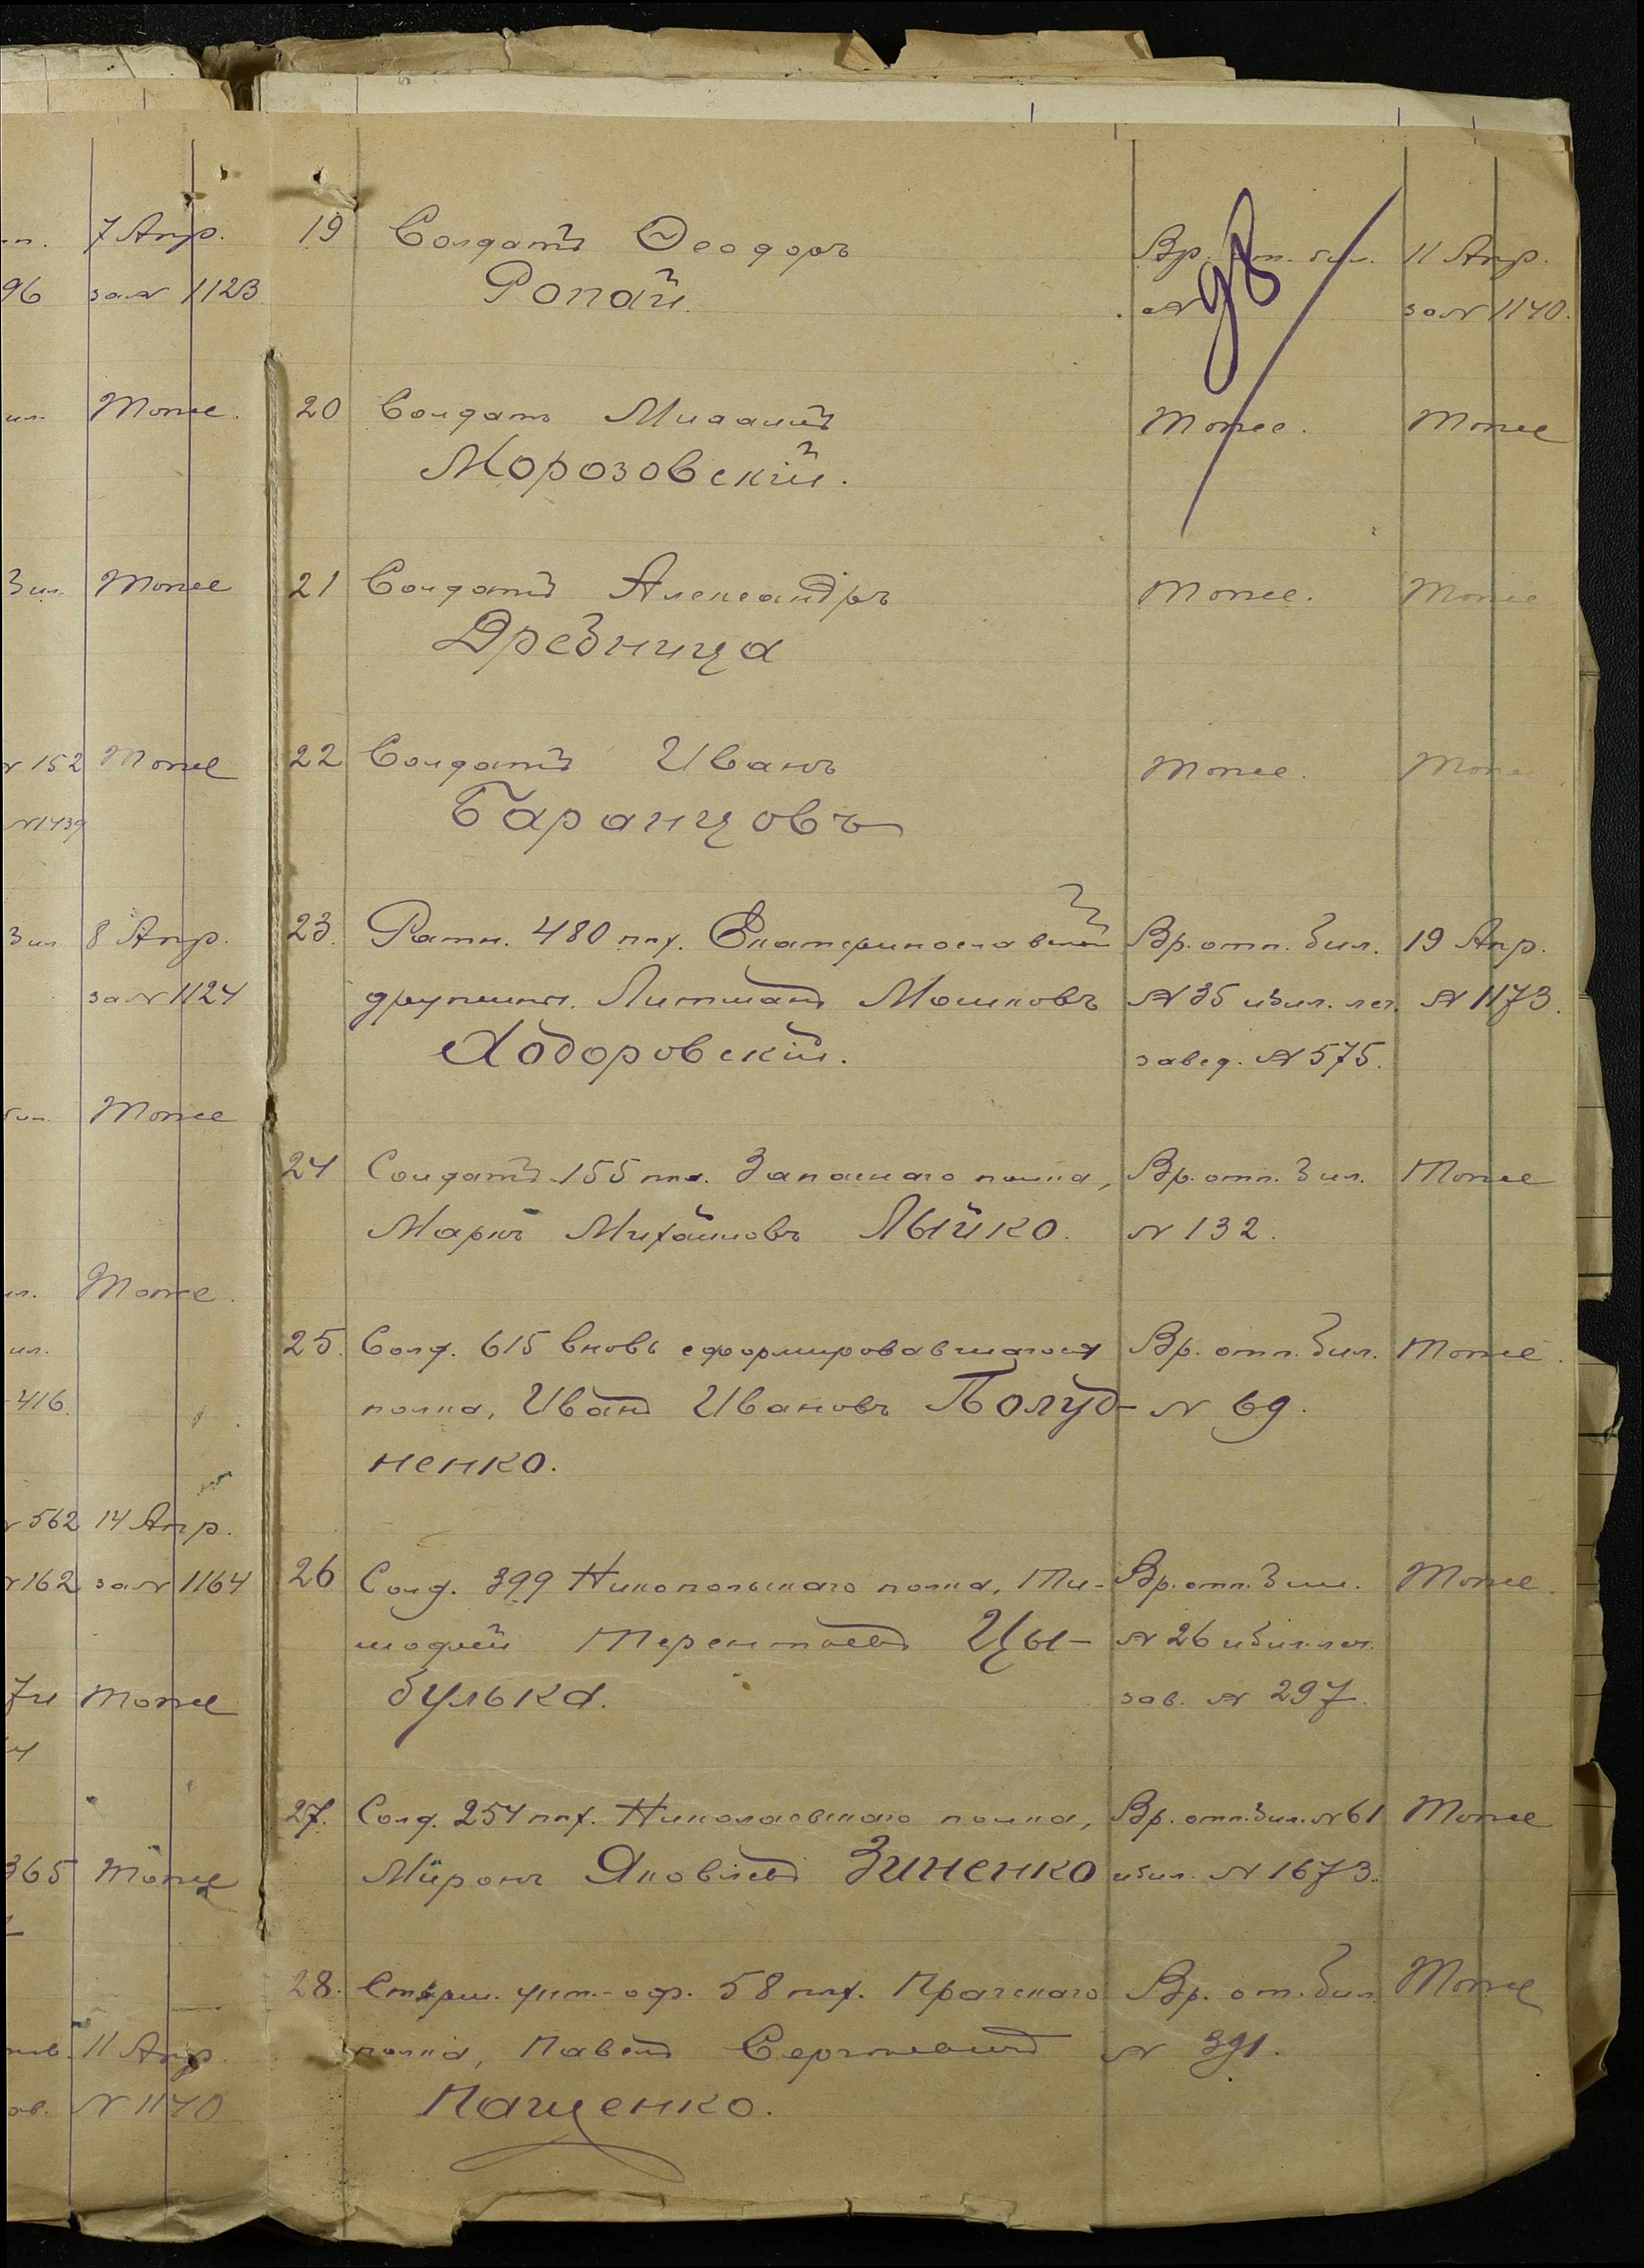 7 Апр.
96 за № 1123
Тоже.
Тоже
№ 152 Тоже
№ 1439
8 Апр.
за № 1124
Тоже
Тоже.
416.
№ 562 14 Апр.
№ 162 за № 1164
Тоже
365 Тоже
11 Апр.
№ 1140
98
19 Солдатъ Ѳеодоръ Вр. отп. бил. 11 Апр.
Ропай. № за № 1140.
20 Солдатъ Михаилъ Тоже. Тоже
Морозовскій.
21 Солдатъ Александръ Тоже. Тоже
Древница
22 Солдатъ Иванъ Тоже. Тоже
Баранцовъ
23. Ратн. 480 пѣх. Екатеринославской Вр. отп. бил. 19 Апр.
дружины. Литманъ Мошковъ № 35 и бил. леч. № 1173.
Ходоровскій. завед. № 575.
24 Солдатъ 155 пѣх. Запаснаго полка, Вр. отп. бил. Тоже
Маркъ Михайловъ Лыйко. № 132.
25. Солд. 615 вновь сформировавшагося Вр. отп. бил. Тоже.
полка, Иванъ Ивановъ Полуд- № 69.
ненко.
26 Солд. 399 Никопольскаго полка, Ти- Вр. отп. бил. Тоже.
мофей Терентьевъ Цы- № 26 и бил. леч.
булька. зав. № 297.
27. Солд. 254 пѣх. Николаевскаго полка, Вр. отп. бил. № 61 Тоже
Миронъ Яковлевъ Зиненко и бил. № 1673.
28. Старш. унт.-оф. 58 пѣх. Прагскаго Вр. от. бил. Тоже
полка, Павелъ Сергѣевичъ № 391.
Пащенко.